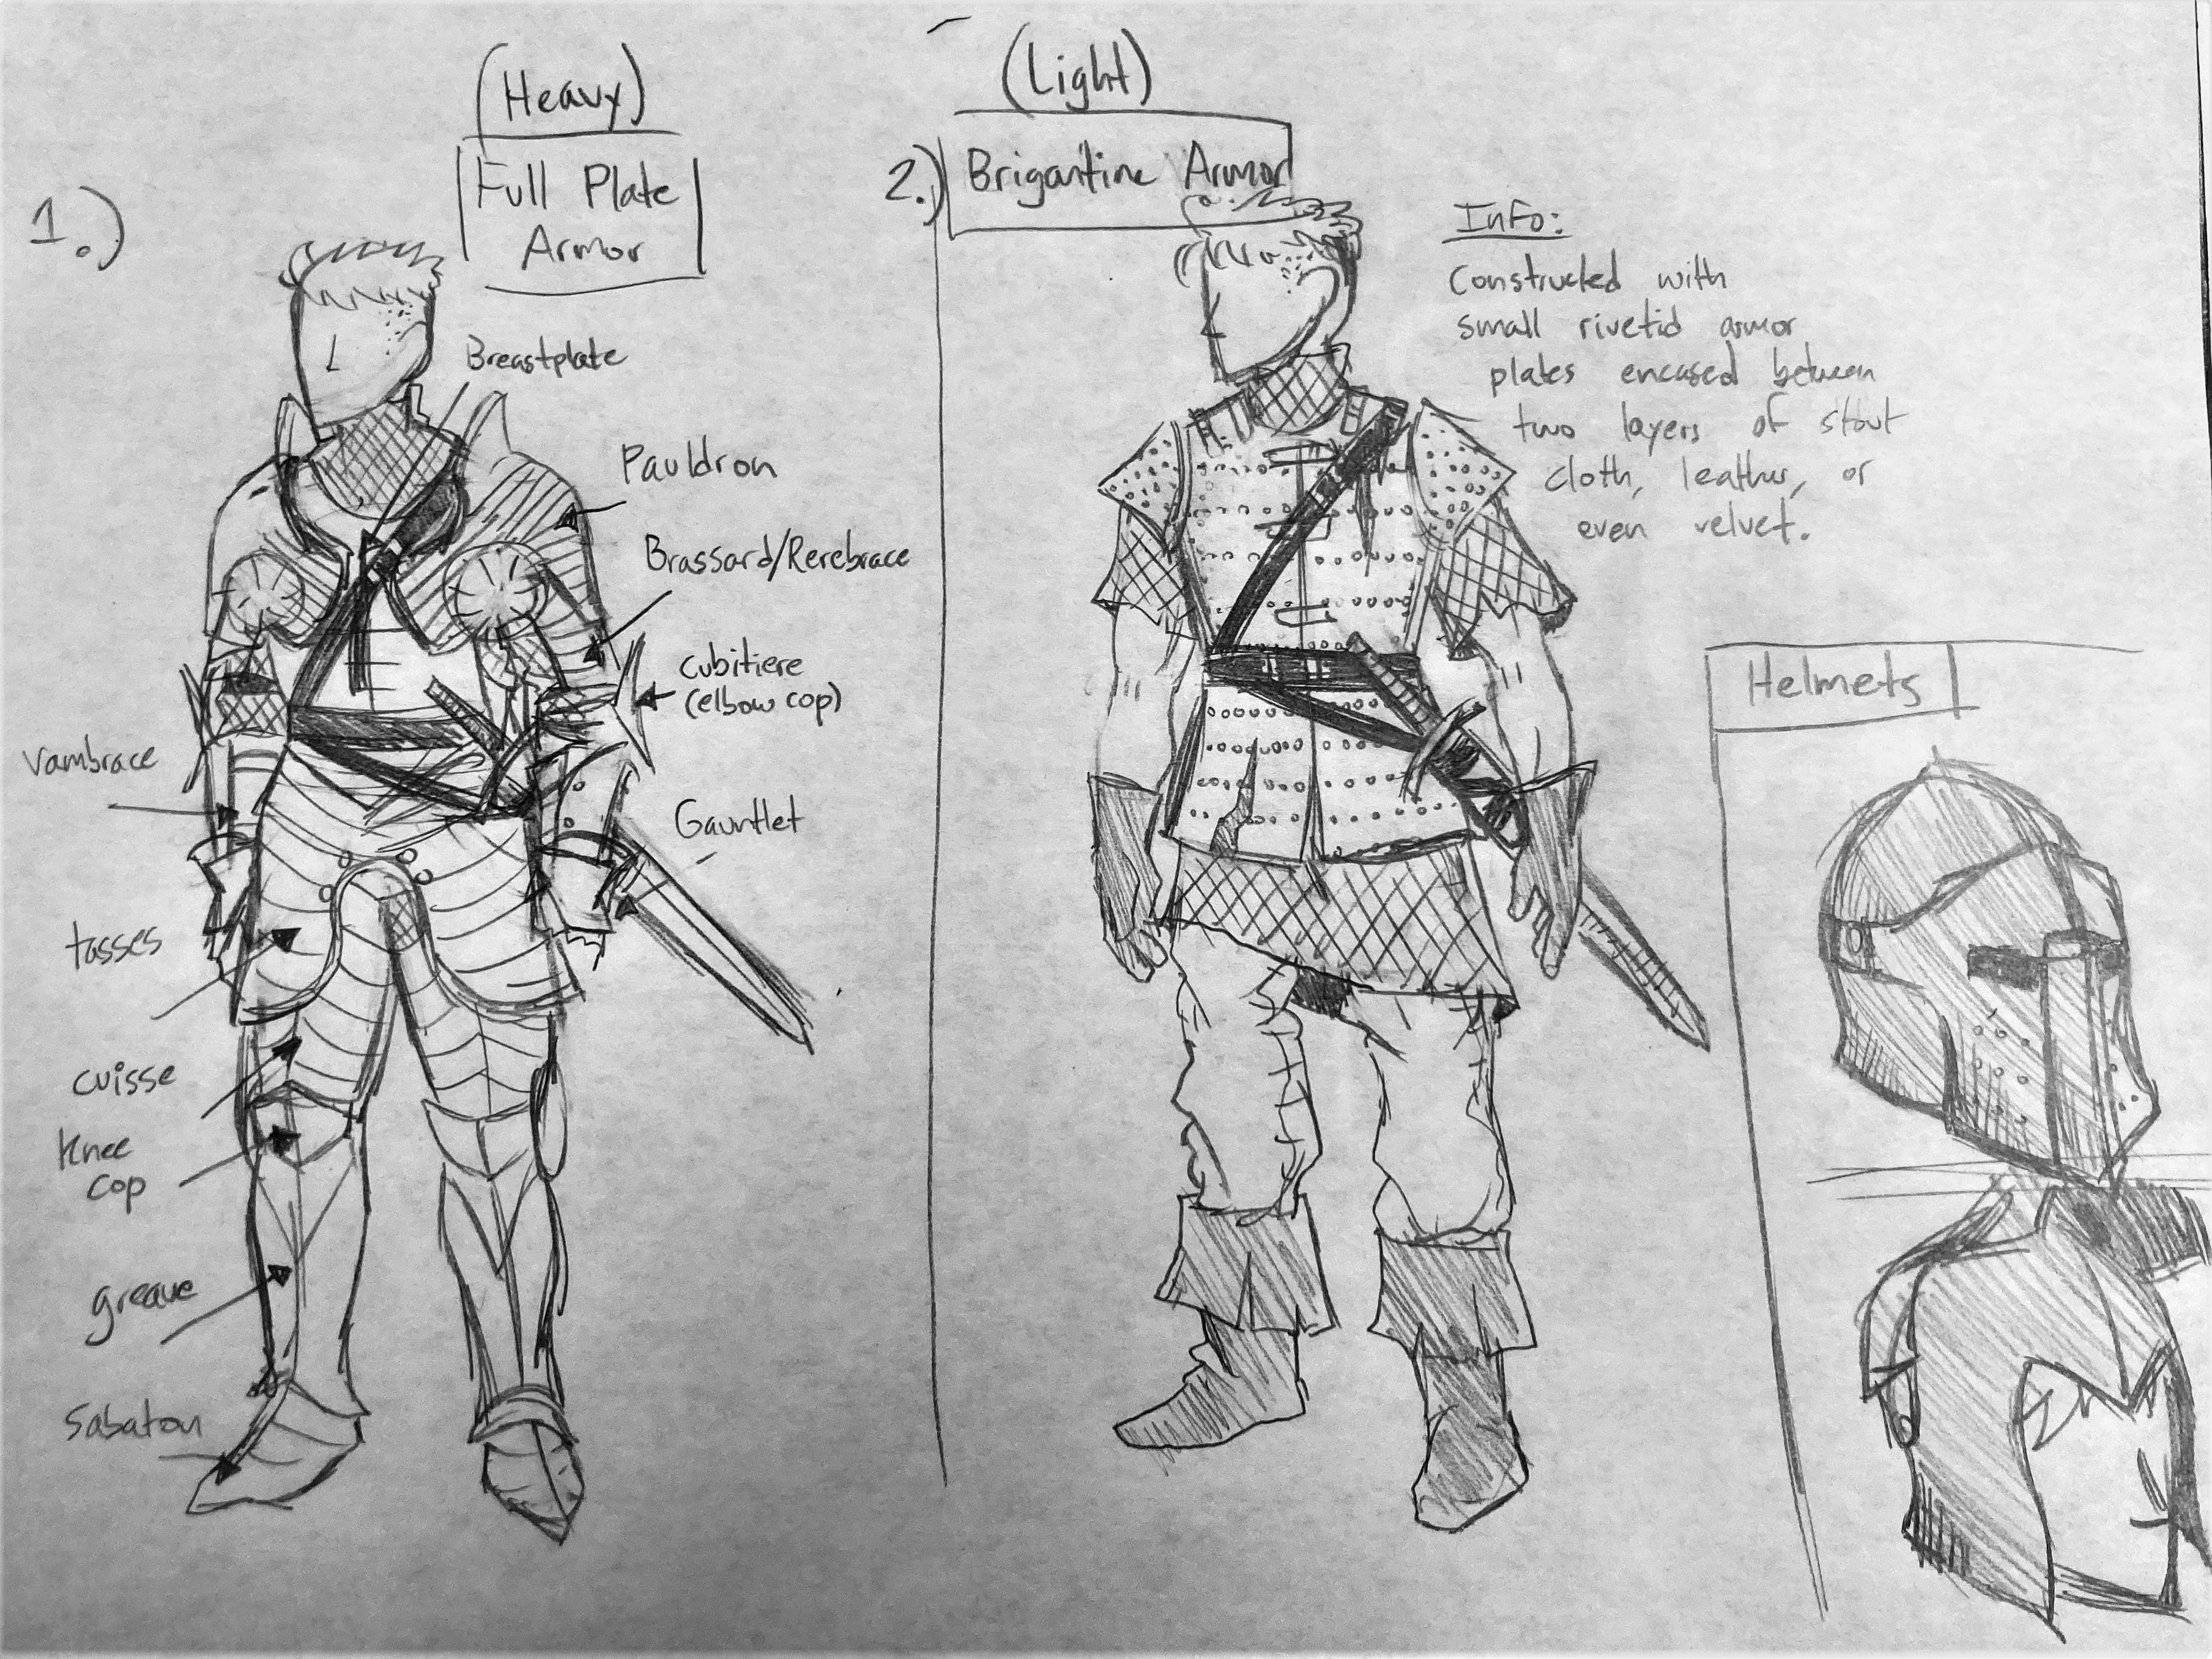 1.)
(Heavy)
Full Plate
Armor
Breastplate
Pauldron
Brassard/Rerebrace
cubitiere
(elbow cop)
Vambrace
Gauntlet
tasses
cuisse
Knee
cop
greave
Sabaton
(Light)
2.)
Brigantine Armor
Info:
Constructed with
small rivetid armor
plates encased between
two layers of stout
cloth, leather, or
even velvet.
Helmets